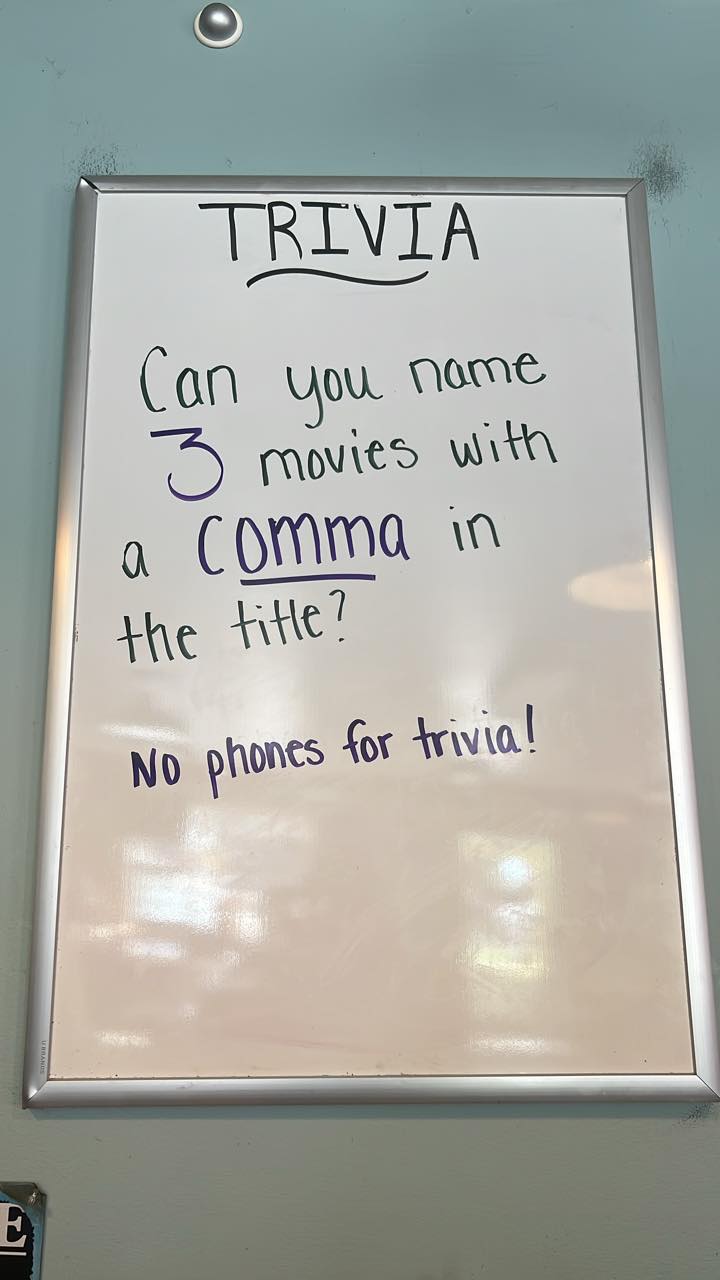 TRIVIA
Can you name
3 movies with
a comma in
the title?
No phones for trivia!
U BRANDS
E